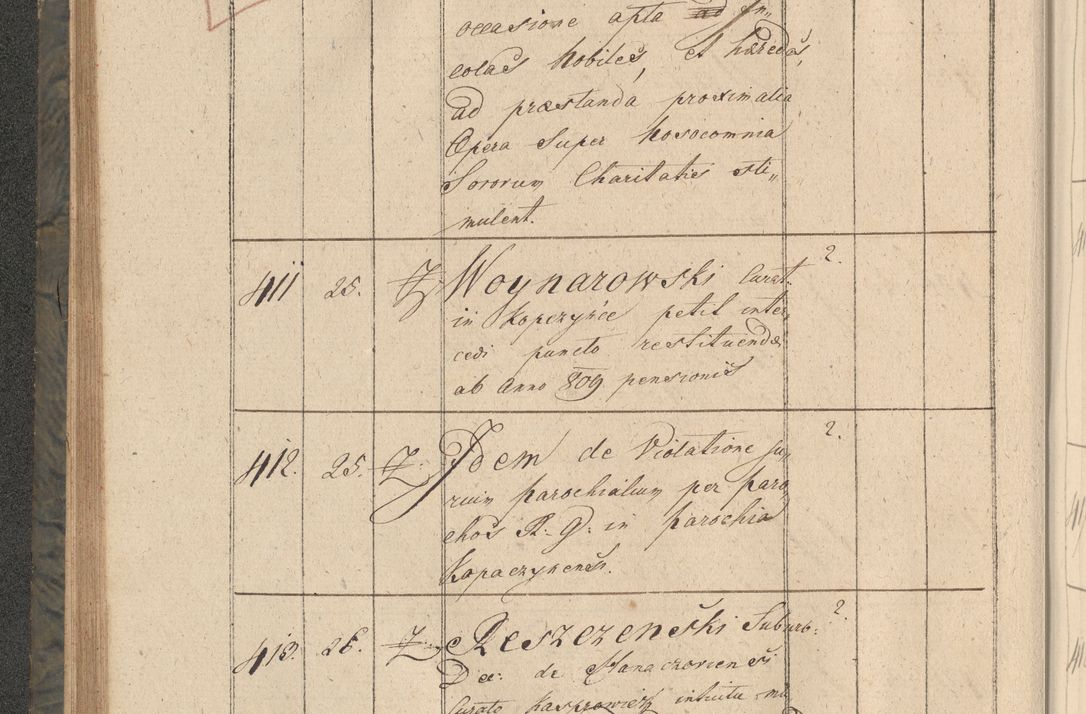 occasione apta ad In„
colas Nobiles, et hæredes,
ad præstanda proximalia
Opera Super Nosocomnia
Sororum Charitatis sti„
mulent.
411 25. Z Woynarowski Curat. 2.
in Kopczynce petit inter„
cedi puncto restituendæ
ab Anno 809 pensionis
412. 25. Z. Idem de Violatione ju„ 2.
rium parochialium per paro„
chos R. G. in parochia
Kopaczynens.
413. 26. Z. Reszczenski Suburb: 2.
Dec: de Manaczoviensi
Curato Kasprowicz intuitu